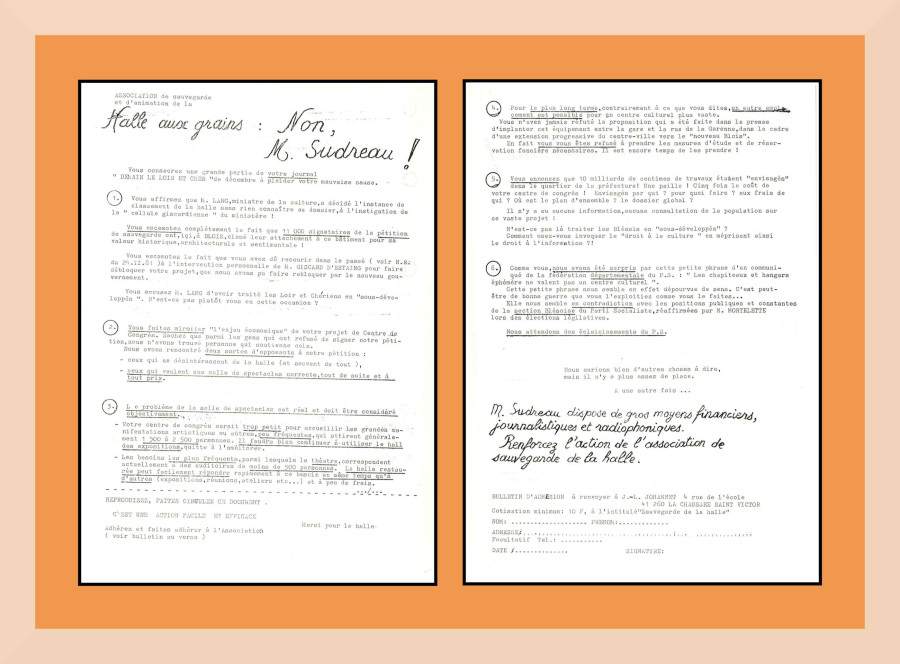 ASSOCIATION de sauvegarde
et d'animation de la
Halle aux grains : Non,
M. Sudreau !
Vous consacrez une grande partie de votre journal
" DEMAIN LE LOIR ET CHER "de décembre à plaider votre mauvaise cause.
1.
Vous affirmez que M. LANG,ministre de la culture,a décidé l'instance de
classement de la halle sans rien connaître au dossier,à l'instigation de
la " cellule giscardienne " du ministère !
Vous escamotez complètement le fait que 11 000 signataires de la pétition
de sauvegarde ont,ici,à BLOIS,clamé leur attachement à ce bâtiment pour sa
valeur historique,architecturale et sentimentale !
Vous escamotez le fait que vous avez dû recourir dans le passé ( voir N.R.
du 24.11.81 )à l'intervention personnelle de M. GISCARD D'ESTAING pour faire
débloquer votre projet,que nous avons pu faire rebloquer par le nouveau gou-
vernement.
Vous accusez M. LANG d'avoir traité les Loir et Chériens en "sous-déve-
loppés ". N'est-ce pas plutôt vous en cette occasion ?
2.
Vous faites miroiter "l'enjeu économique" de votre projet de Centre de
Congrès. Sachez que parmi les gens qui ont refusé de signer notre péti-
tion,nous n'avons trouvé personne qui soutienne cela.
Nous avons rencontré deux sortes d'opposants à notre pétition :
- ceux qui se désintéressent de la halle (et souvent de tout ),
- ceux qui veulent une salle de spectacles correcte,tout de suite et à
tout prix.
3.
L e problème de la salle de spectacles est réel et doit être considéré
objectivement.
- Votre centre de congrès serait trop petit pour accueillir les grandes ma-
nifestations artistiques ou autres,peu fréquentes,qui attirent générale-
ment 1 500 à 2 500 personnes. Il faudra bien continuer à utiliser le hall
des expositions,quitte à l'améliorer.
- Les besoins les plus fréquents,parmi lesquels le théâtre,correspondent
actuellement à des auditoires de moins de 500 personnes. La halle restau-
rée peut facilement répondre rapidement à ce besoin en même temps qu'à
d'autres (expositions,réunions,ateliers etc...) et à peu de frais.
REPRODUISEZ, FAITES CIRCULER CE DOCUMENT .
C'EST UNE ACTION FACILE ET EFFICACE
Merci pour la halle
Adhérez et faites adhérer à l'association
( voir bulletin au verso )
4.
Pour le plus long terme,contrairement à ce que vous dites,un autre empla-
cement est possible pour un centre culturel plus vaste.
Vous n'avez jamais réfuté la proposition qui a été faite dans la presse
d'implanter cet équipement entre la gare et la rue de la Garenne,dans le cadre
d'une extension progressive du centre-ville vers le "nouveau Blois".
En fait vous vous êtes refusé à prendre les mesures d'étude et de réser-
vation foncière nécessaires. Il est encore temps de les prendre !
5.
Vous annoncez que 10 milliards de centimes de travaux étaient "envisagés"
dans le quartier de la préfecture! Une paille ! Cinq fois le coût de
votre centre de congrès ! Envisagés par qui ? pour quoi faire ? aux frais de
qui ? Où est le plan d'ensemble ? le dossier global ?
Il n'y a eu aucune information,aucune consultation de la population sur
ce vaste projet !
N'est-ce pas là traiter les Blésois en "sous-développés" ?
Comment osez-vous invoquer le "droit à la culture " en méprisant ainsi
le droit à l'information ?!
6.
Comme vous,nous avons été surpris par cette petite phrase d'un communi-
qué de la fédération départementale du P.S. : " Les chapiteaux et hangars
éphémère ne valent pas un centre culturel ".
Cette petite phrase nous semble en effet dépourvue de sens. C'est peut-
être de bonne guerre que vous l'exploitiez comme vous le faites...
Elle nous semble en contradiction avec les positions publiques et constantes
de la section Blésoise du Parti Socialiste,réaffirmées par M. MORTELETTE
lors des élections législatives.
Nous attendons des éclaircissements du P.S.
Nous aurions bien d'autres choses à dire,
mais il n'y a plus assez de place.
A une autre fois ...
M. Sudreau dispose de gros moyens financiers,
journalistiques et radiophoniques.
Renforcez l'action de l'association de
sauvegarde de la halle.
BULLETIN D'ADHÉSION à renvoyer à J.-L. JOHANNET 4 rue de l'école
41 260 LA CHAUSSEE SAINT VICTOR
Cotisation minimum: 10 F, à l'intitulé"Sauvegarde de la halle"
NOM: .................... PRENOM:.............
ADRESSE/.........................................
Facultatif Tel.: ...........
DATE /.............. SIGNATURE: